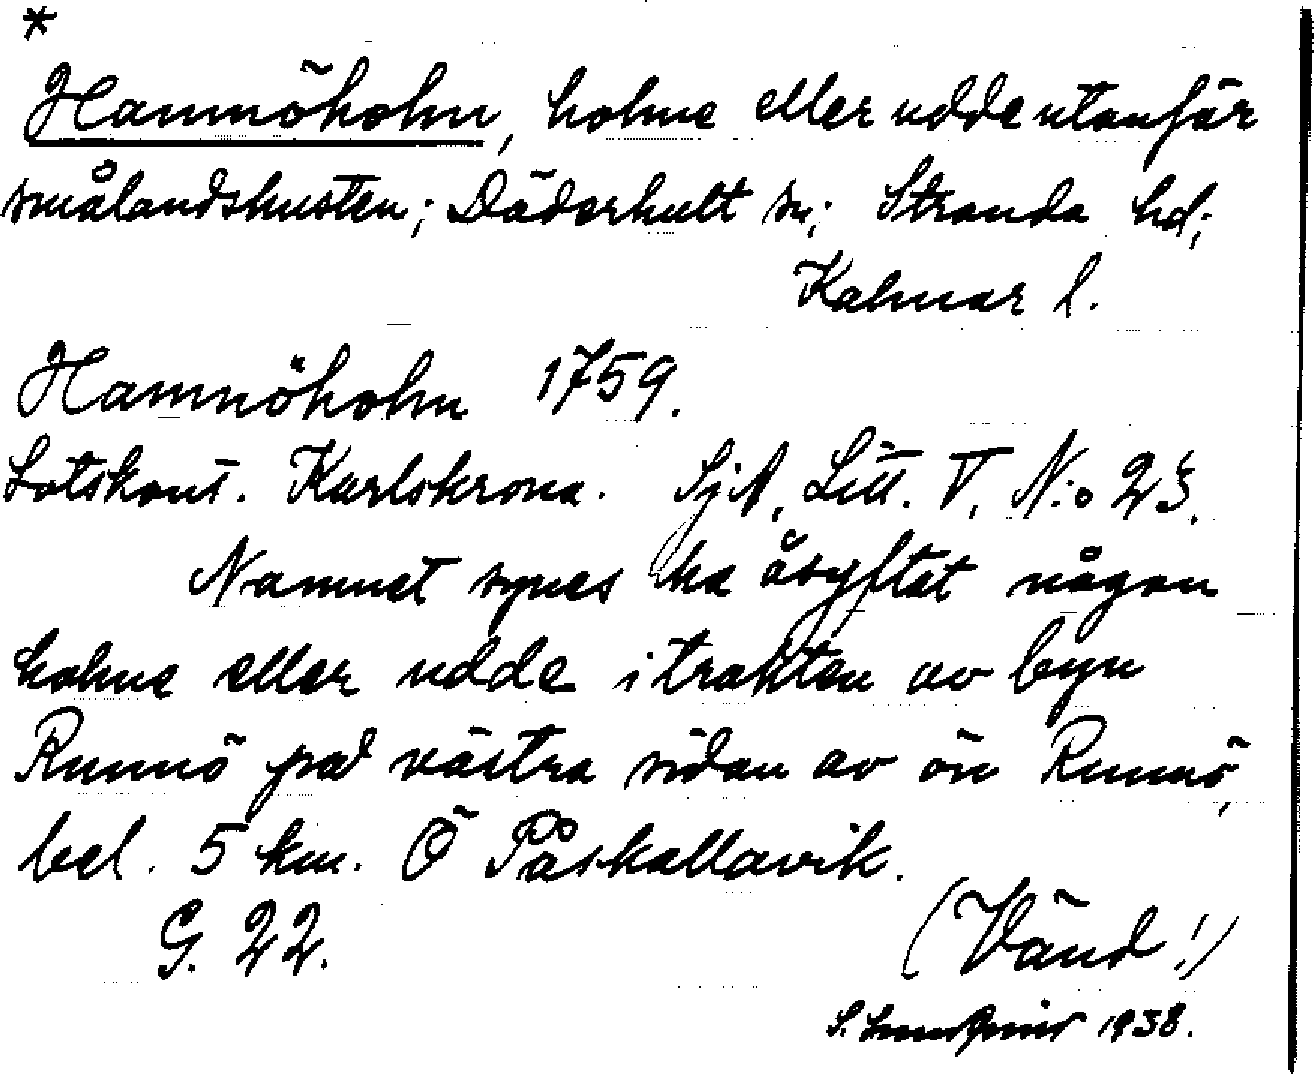 *
Hamnöholm, holme eller udde utanför
smålandskusten; Döderhult sn; Stranda hd;
Kalmar l.
Hamnöholm 1759.
Lotskont. Karlskrona. SjA, Litt. V, N:o 23.
Namnet synes ha åsyftat någon
holme eller udde i trakten av byn
Runnö på västra sidan av ön Runnö,
bel. 5 km. Ö Påskallavik.
G. 22.
(Vänd!)
S. 1938.